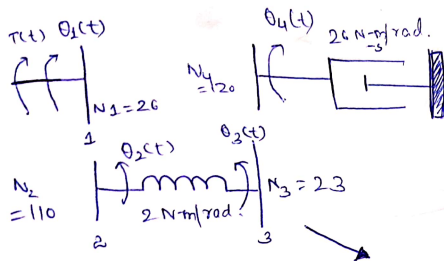 T(t) θ1(t)
N1=26
1
θ4(t)
26 N-m-s/rad.
N4
=120
θ2(t)
θ3(t)
N2
=110
2 N-m/rad.
N3=23
2
3